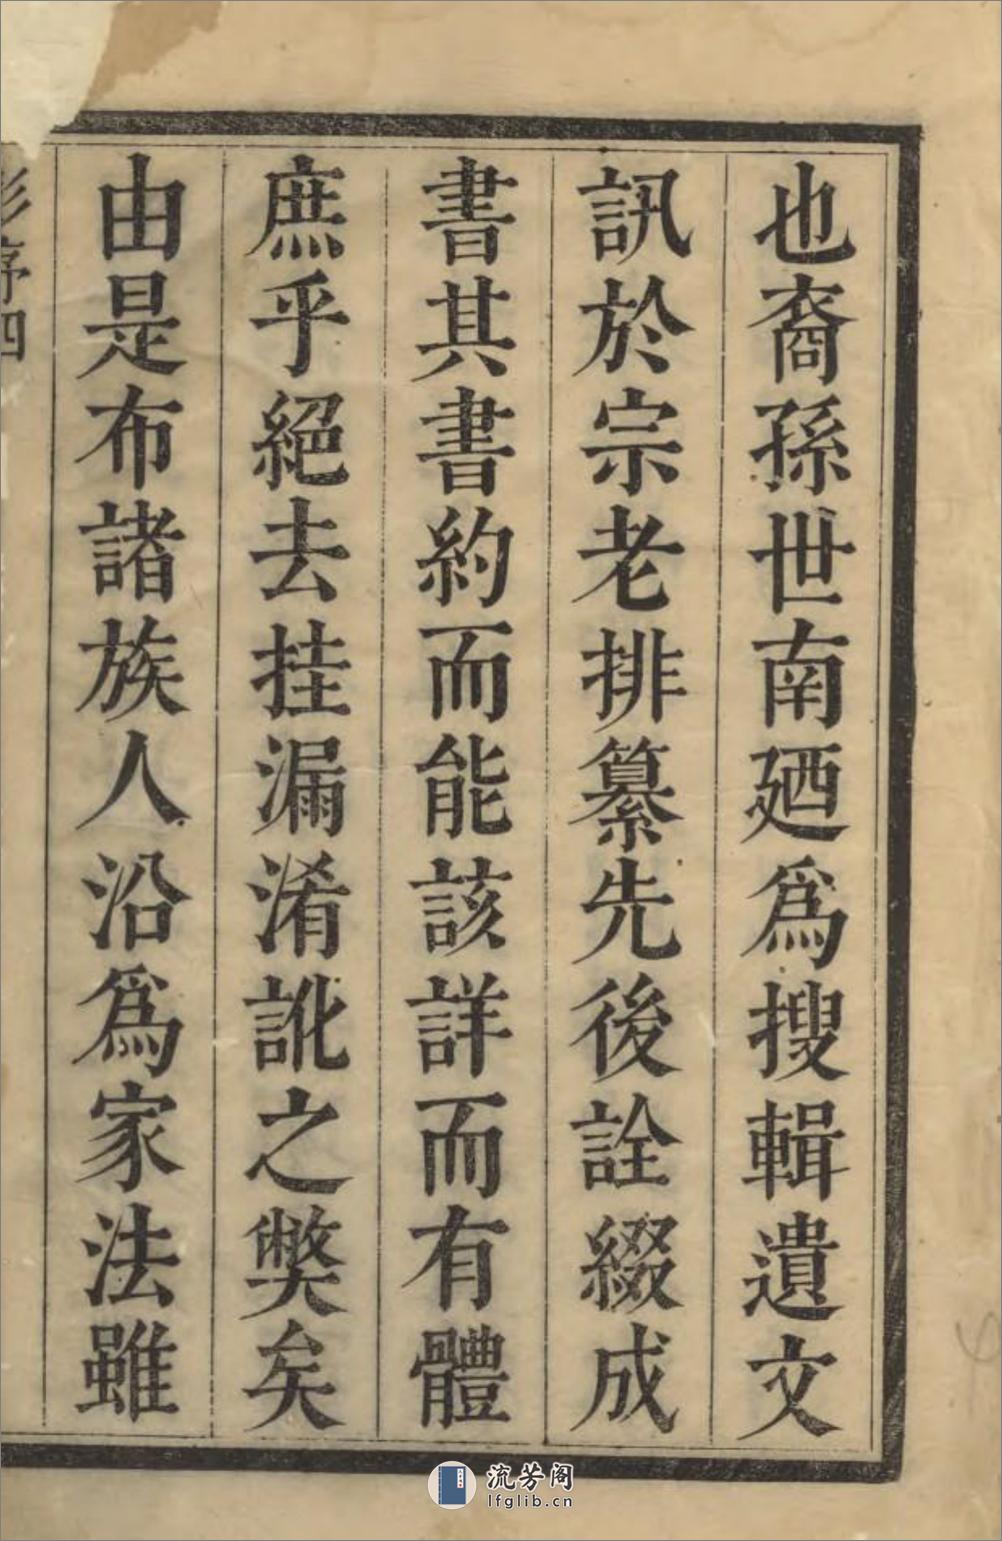 也裔孫世南廼爲搜輯遺文
訊於宗老排纂先後詮綴成
書其書約而能該詳而有體
庶乎絕去挂漏淆訛之獘矣
由是布諸族人沿爲家法雖
序四
流芳阁
lfglib.cn